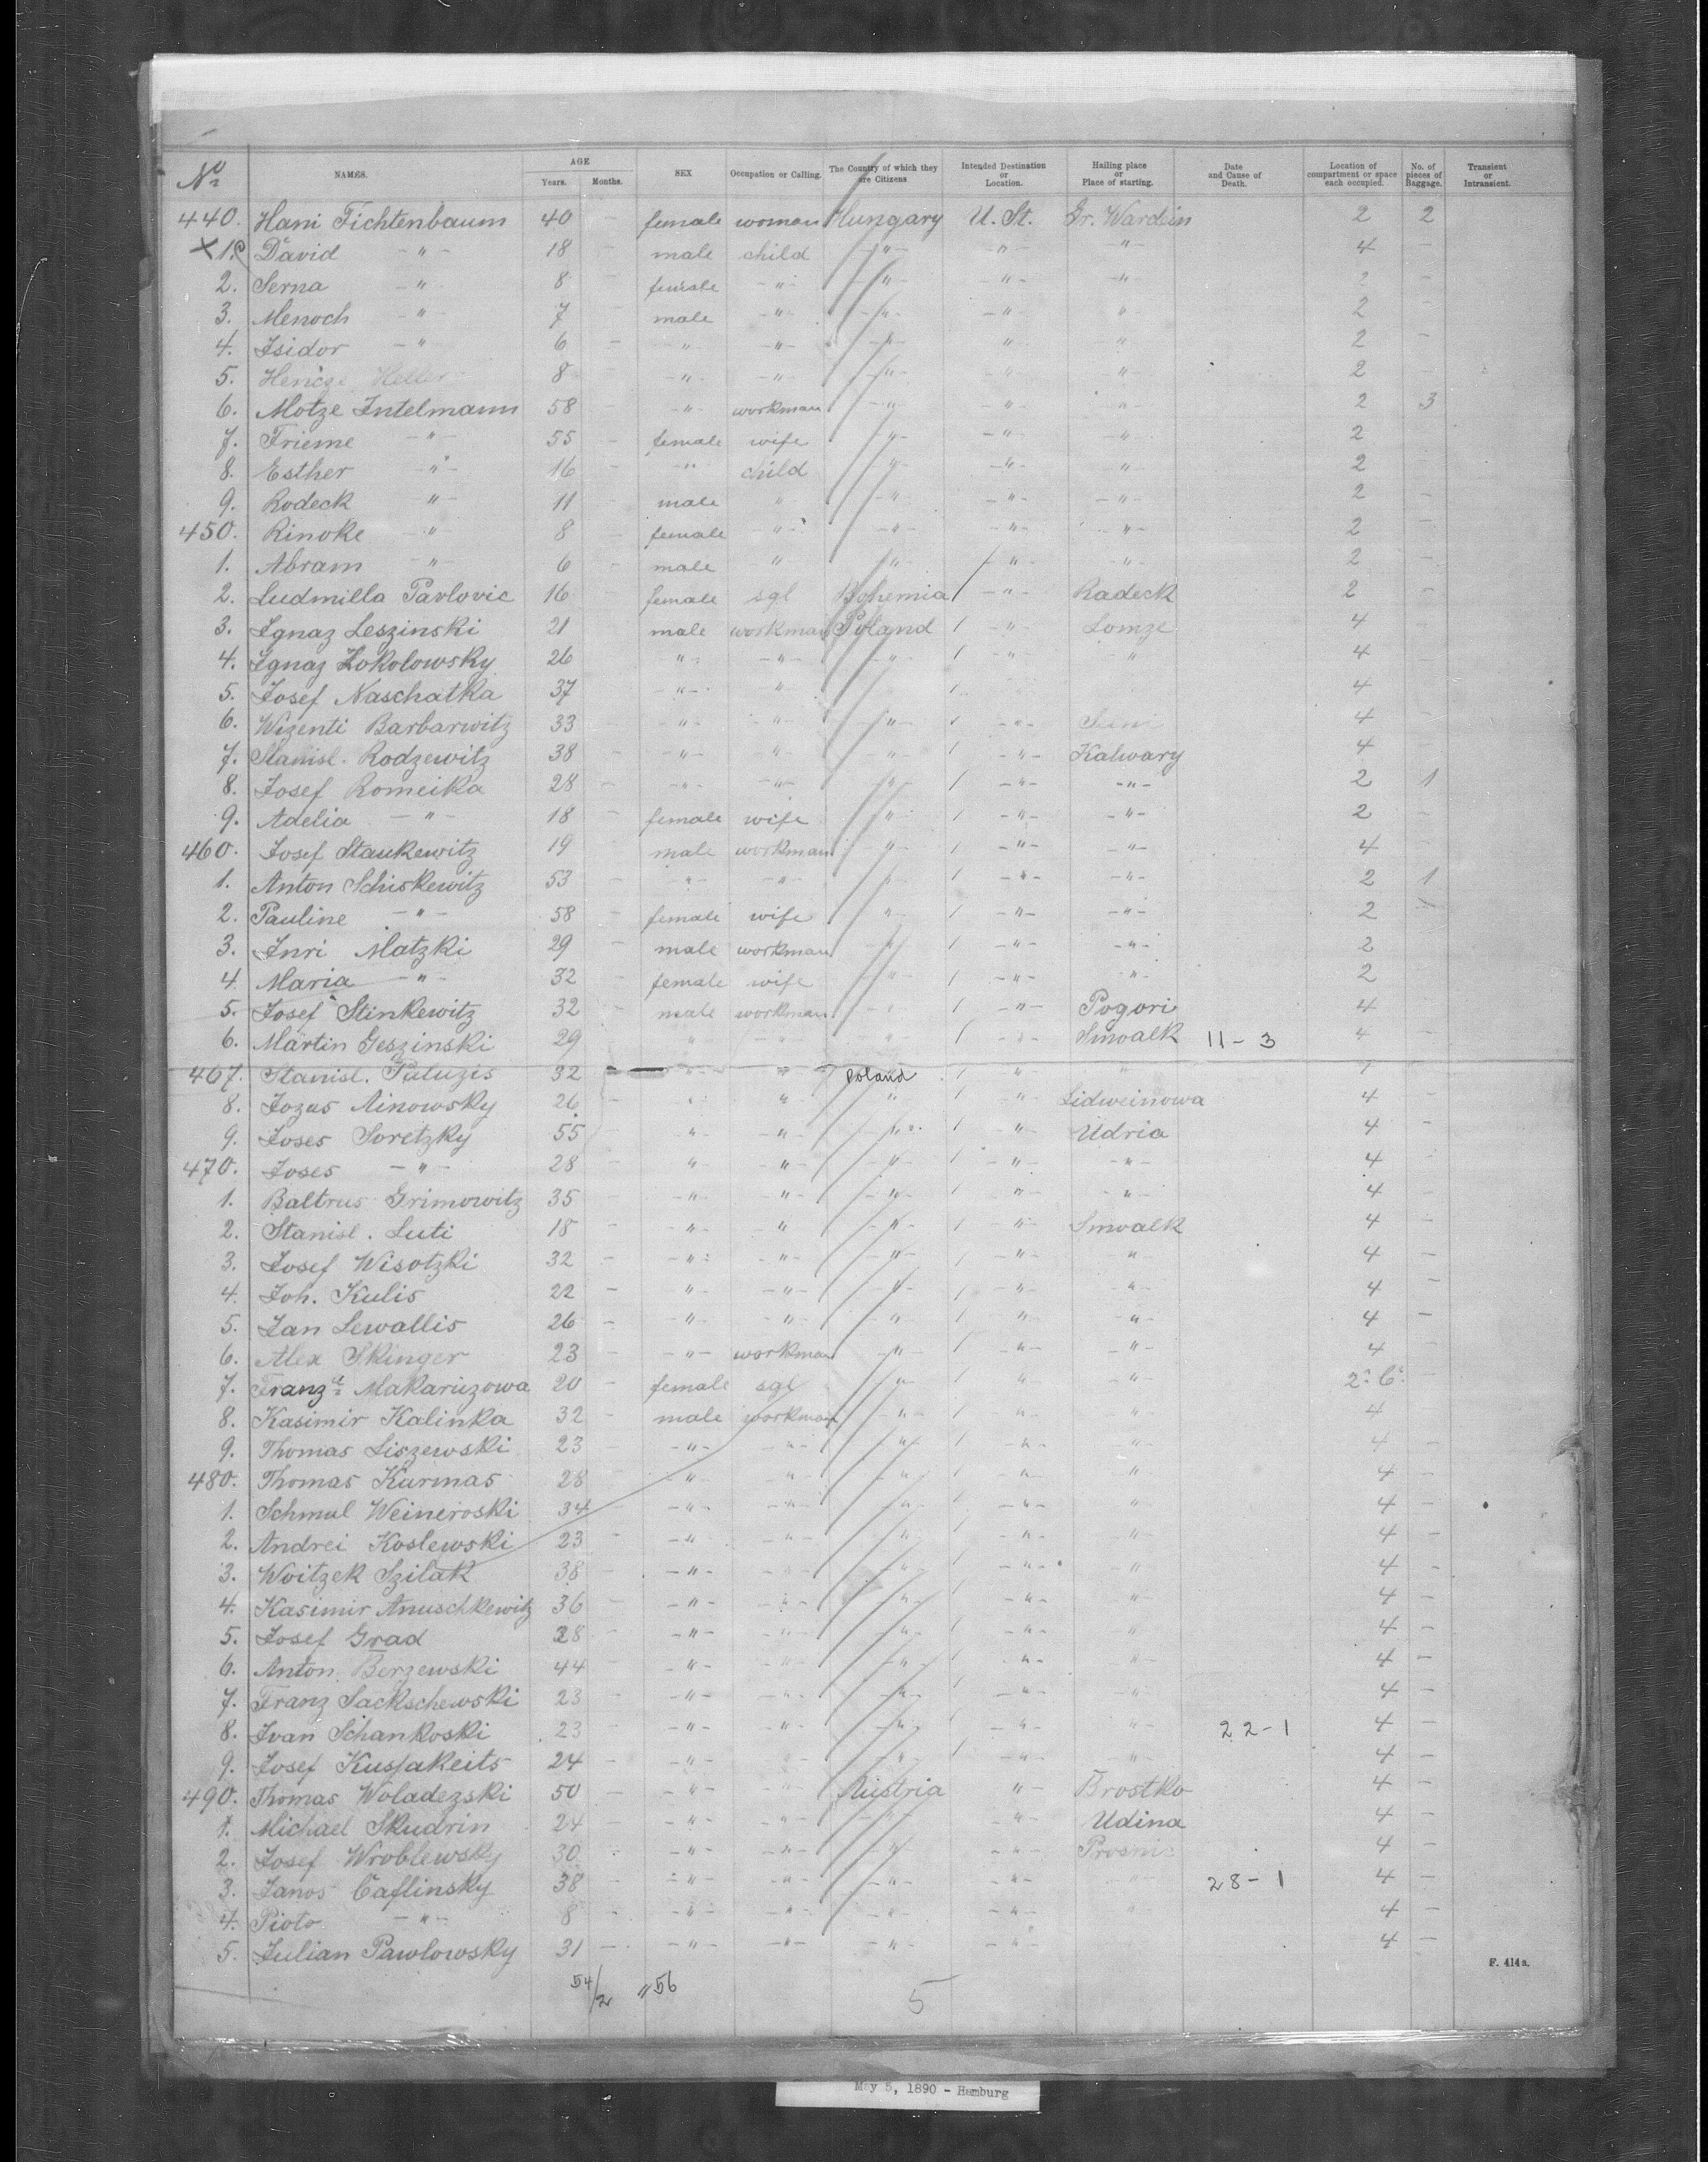 No NAMES. AGE Years. Months. SEX Occupation or Calling. The Country of which they are Citizens Intended Destination or Location. Hailing place or Place of starting. Date and Cause of Death. Location of compartment or space each occupied. No. of pieces of Baggage. Transient or Intransient.
440. Hani Fichtenbaum 40 - female woman Hungary U. St. Gr. Wardein 2 2
X 1. David -"- 18 male child -"- -"- -"- 4 -
2. Serna -"- 8 female -"- -"- -"- -"- 2 -
3. Menoch -"- 7 male -"- -"- -"- " 2 -
4. Isidor -"- 6 - " -"- -"- " " 2 -
5. Heller 8 -"- -"- -"- -"- " 2 -
6. Motze Intelmann 58 - -"- workman -"- " -"- 2 3
7. Frieme -"- 55 - female wife -"- -"- -"- 2
8. Esther -"- 16 - -"- child " -"- " 2
9. Rodeck "- 11 male " -"- -"- -"- 2 -
450. Rinoke " 8 female -"- -"- -"- -"- 2 -
1. Abram -"- 6 - male " " -"- -"- 2 -
2. Ludmilla Pavlovic 16 female sgl Bohemia -"- Radeck 2 -
3. Ignaz Leszinski 21 male workman Poland -"- Lomze 4 -
4. Ignaz Zokolowsky 26 -"- -"- -"- -"- " 4
5. Josef Naschatka 37 -"- " 4
6. Wizenti Barbarwitz 33 -"- -"- -"- -"- 4 -
7. Stanisl. Rodzewitz 38 - -"- -"- " -"- Kalwary 4
8. Josef Romeika 28 - -"- -"- -"- -"- -"- 2 1
9. Adelia -"- 18 - female wife " -"- -"- 2 -
460. Josef Staukewitz 19 male workman -"- -"- -"- 4 -
1. Anton Schiskewitz 53 -"- -"- " -"- -"- 2 1
2. Pauline -"- 58 - female wife "- -"- -"- 2
3. Inri Matzki 29 - male workman " -"- -"- 2
4. Maria -"- 32 - female wife " -"- " 2
5. Josef Stinkewitz 32 - male workman " -"- Pogori 4 -
6. Martin Geszinski 29 " " -"- Smoalk 11-3 4 -
467. Stanisl. Paluzis 32 " " Poland " "
8. Jozas Ainowsky 26 " " " " Lidweinowa 4 -
9. Joses Soretzky 55 " " " " Udria 4 -
470. Joses -"- 28 - " -"- -"- -"- -"- 4 -
1. Baltrus Grimowitz 35 - -"- " -"- " -"- 4 -
2. Stanisl. Luti 18 - -"- -"- -"- " Smoalk 4 -
3. Josef Wisotzki 32 - -"- -"- -"- " " 4 -
4. Joh. Kulis 22 - " -"- " -"- " 4 -
5. Jan Lewallis 26 - " -"- " " -"- 4 -
6. Alex Skinger 23 - -"- workman -"- -"- -"- 4
7. Franza Makaruzowa 20 - female sgl " " -"- 2. C. -
8. Kasimir Kalinka 32 - male workman -"- " " 4
9. Thomas Liszewski 23 -"- -"- -"- -"- " 4 -
480. Thomas Karmas 28 " " -"- " " 4 -
1. Schmul Weineroski 34 - -"- -"- " -"- " 4 -
2. Andrei Koslewski 23 - -"- " " -"- " 4 -
3. Woitzek Szilak 38 - -"- -"- -"- -"- " 4 -
4. Kasimir Anuschkewitz 36 -"- -"- " -"- " 4 -
5. Josef Grad 28 -"- -"- " -"- " 4 -
6. Anton Berzewski 44 -"- -"- " -"- " 4 -
7. Franz Sackschewski 23 - -"- -"- " -"- " 4 -
8. Ivan Schankoski 23 - -"- -"- -"- -"- " 22-1 4 -
9. Josef Kussakeits 24 - -"- " " -"- -"- 4 -
490. Thomas Woladezski 50 - -"- -"- Austria "- Brostko 4 -
1. Michael Skudrin 24 - -"- -"- -"- " Udina 4 -
2. Josef Wroblewsky 30 -"- -"- " -"- 4 -
3. Janos Caflinsky 38 - -"- -"- -"- -"- " 28-1 4 -
4. Pioto -"- 8 - -"- -"- -"- -"- " 4 -
5. Julian Pawlowsky 31 - -"- -"- -"- -"- 4 -
F. 414a.
54/2 "56 5
May 5, 1890 - Hamburg